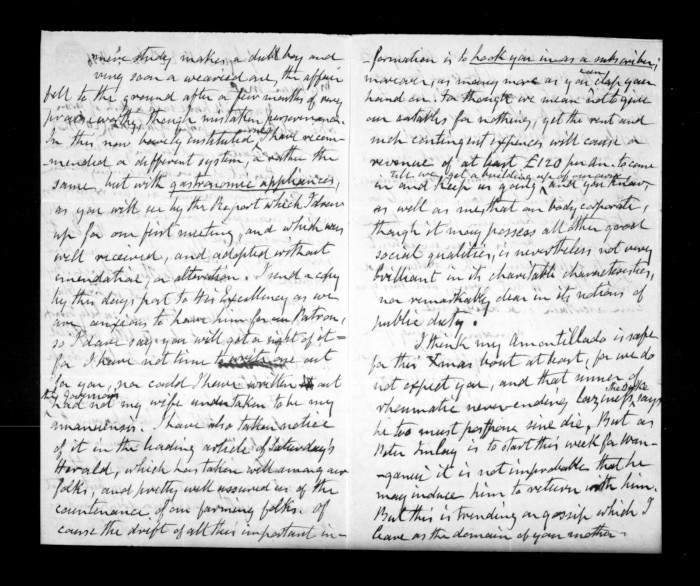 mere study makes a dull boy and
very soon a wearied one, the affair
fell to the ground after a few months of very
praiseworthy, though mistaken perseverance.
In this now newly instituted, I have recom-
mended a different system, or rather the
same, but with gastronomic appliances,
as you will see by the Report which I drew
up for our first meeting, and which was
well received, and adopted without
emendation, or alteration. I send a copy
by this day's post to His Excellency as we
are anxious to have him for our Patron,
so I dare say you will get a sight of it -
for I have not time to write one out
for you, nor could I have written it out
to the governor
had not my wife undertaken to be my
amanuensis. I have also taken notice
of it in the leading article of Saturday's
Herald, which has taken well among our
folks, and pretty well assured us of the
countenance of our farming folks. Of
course the drift of all this important in-
formation is to hook you in as a subscriber;
moreover, as many more as you can clap your
hand on. For though we mean not to give
our eatables for nothing, yet the rent and
such contingent expences will cause a
revenue of at least £120 per an. to come
till we get a building up of our own
in and keep us going, and you know,
as well as me, that our body corporate,
though it may possess all other good
social qualities, is nevertheless not very
brilliant in its charitable characteristics,
nor remarkably clear in its notions of
public duty.
I think my Amontillado is safe
for this Xmas bout at least, for we do
not expect you, and that sinner of
rheumatic never-ending laziness, the Dr says
he too must postpone sine die, But as
Peter Imlay is to start this week for Wan-
-ganui it is not improbable that he
may induce him to return with him.
But this is trending on gossip which I
leave as the domain of your mother-